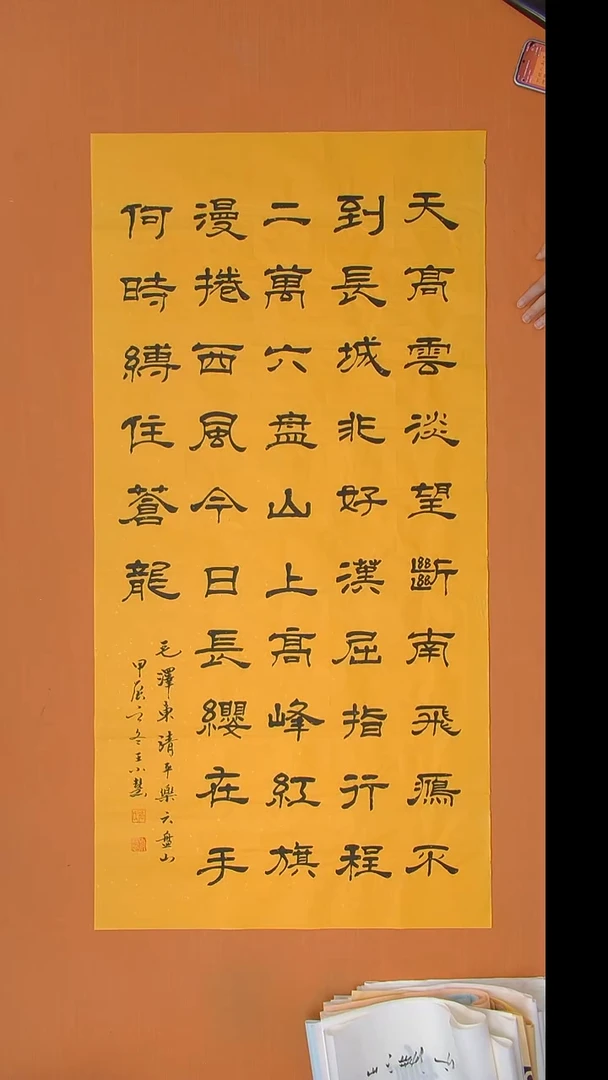 天高雲淡望斷南飛鴈不
到長城非好漢屈指行程
二萬六盘山上高峰紅旗
漫捲西風今日長纓在手
何時縛住蒼龍
毛澤東清平樂六盘山
甲辰之冬王小慧